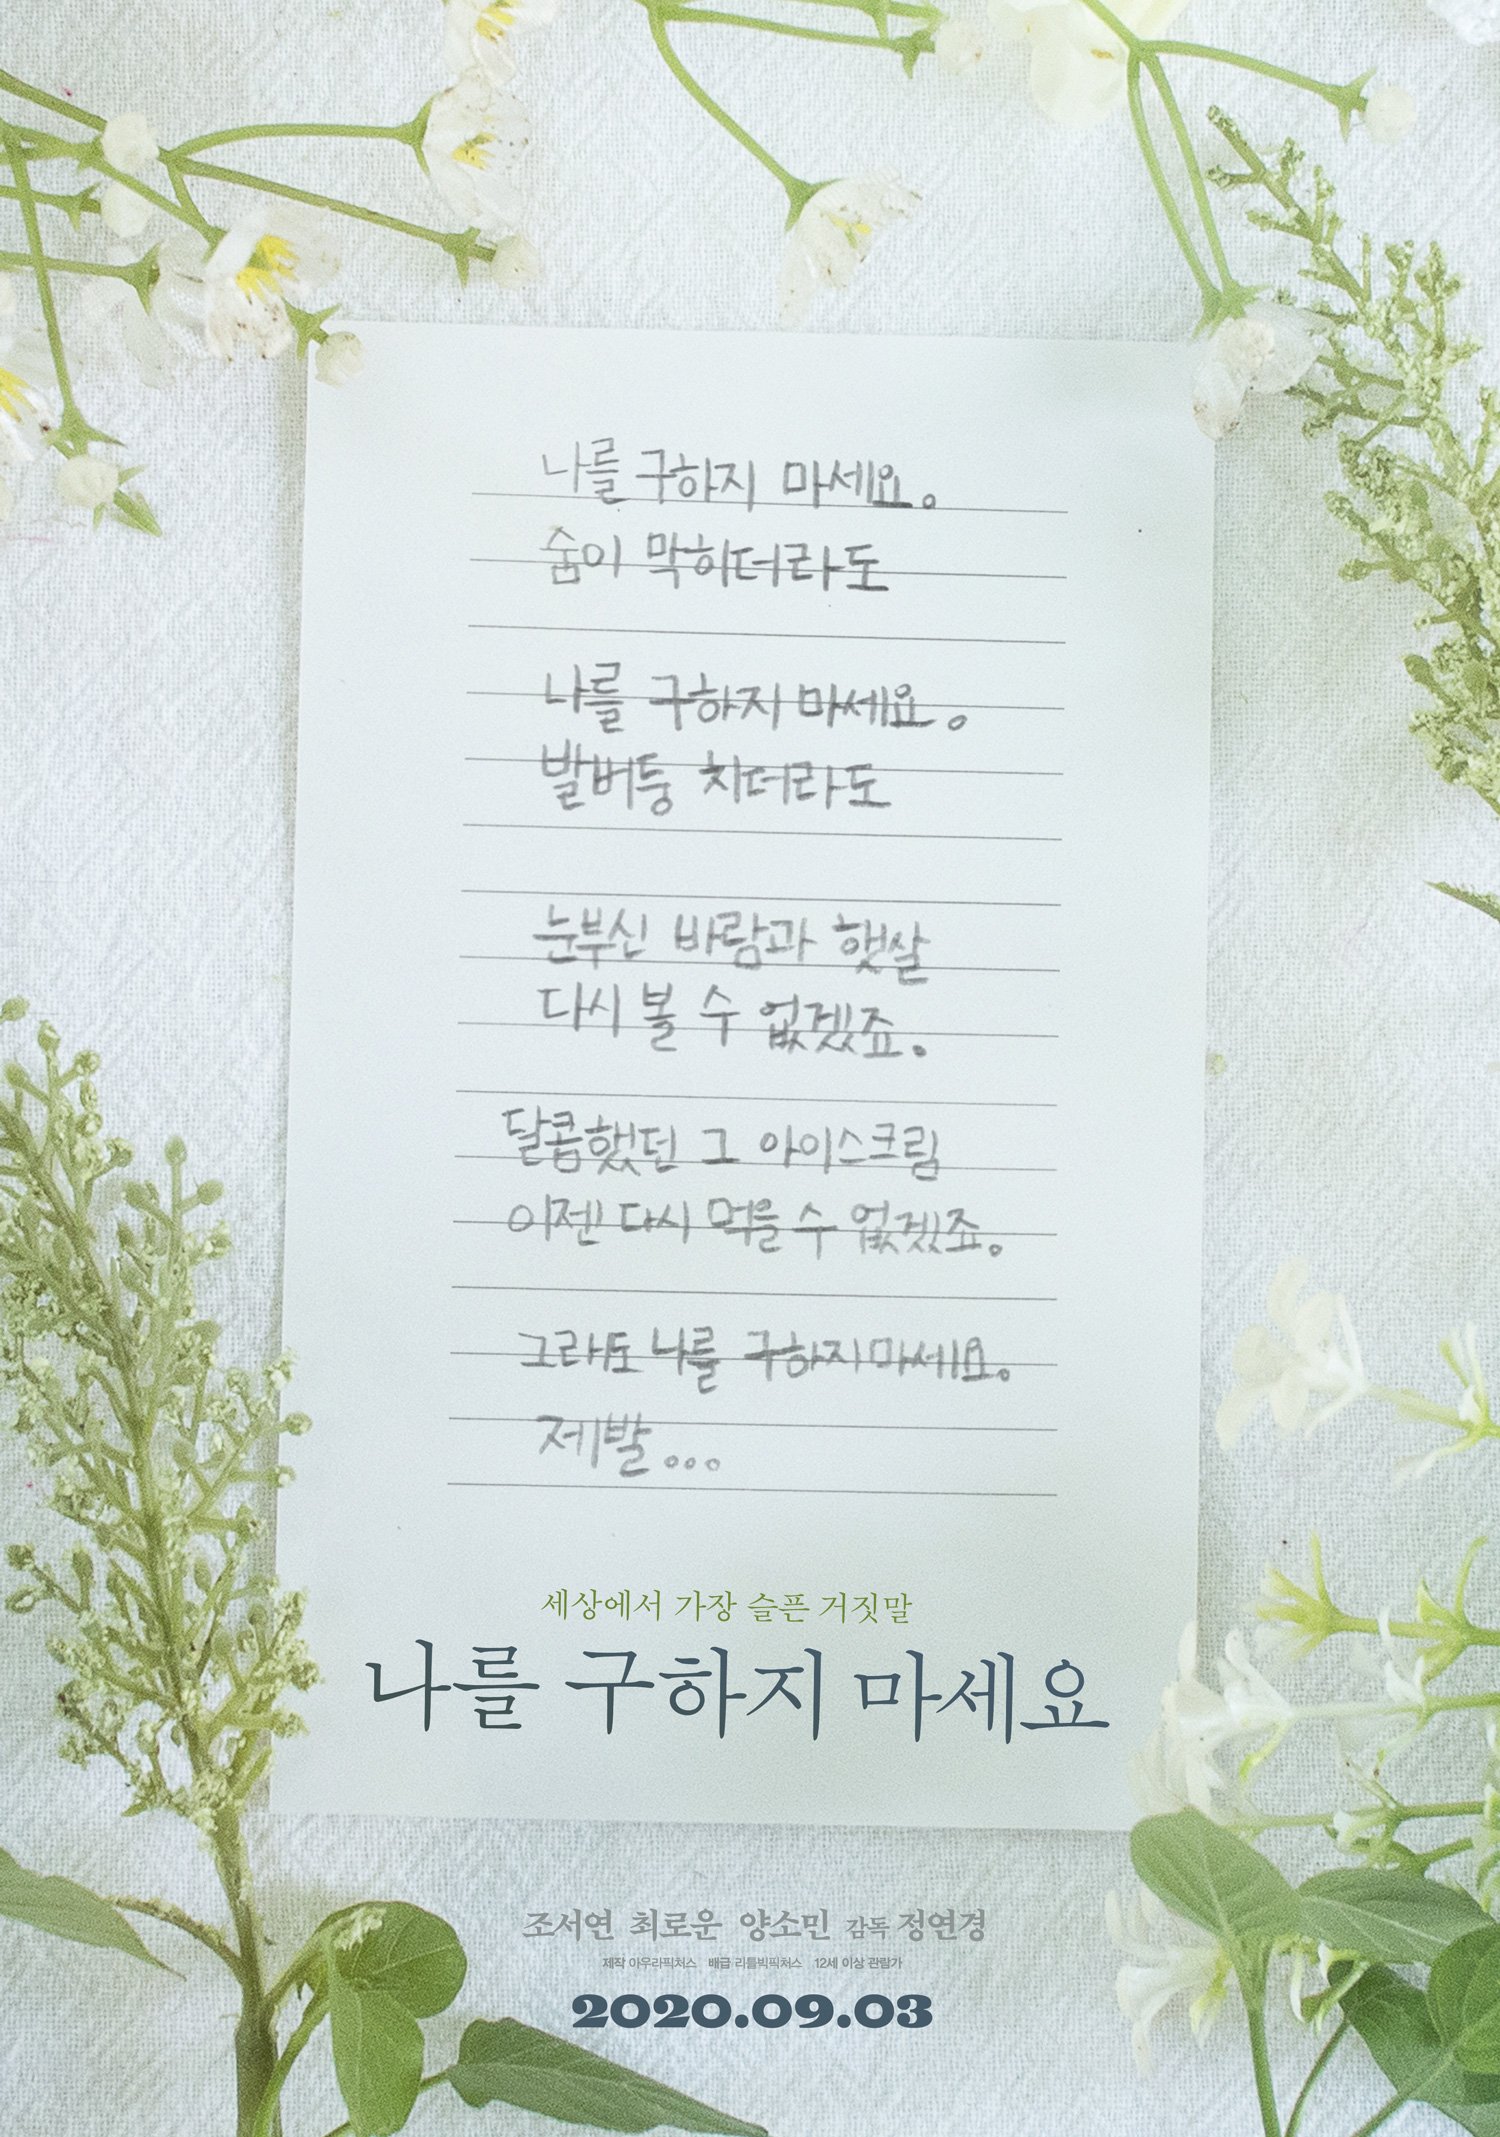 나를 구하지 마세요.
숨이 막히더라도
나를 구하지 마세요.
발버둥 치더라도
눈부신 바람과 햇살
다시 볼 수 없겠죠.
달콤했던 그 아이스크림
이젠 다시 먹을 수 없겠죠.
그래도 나를 구하지 마세요.
제발...
세상에서 가장 슬픈 거짓말
나를 구하지 마세요
조서연 최로운 양소민 감독 정연경
제작 아우라픽처스 배급 리틀빅픽처스 12세 이상 관람가
2020.09.03